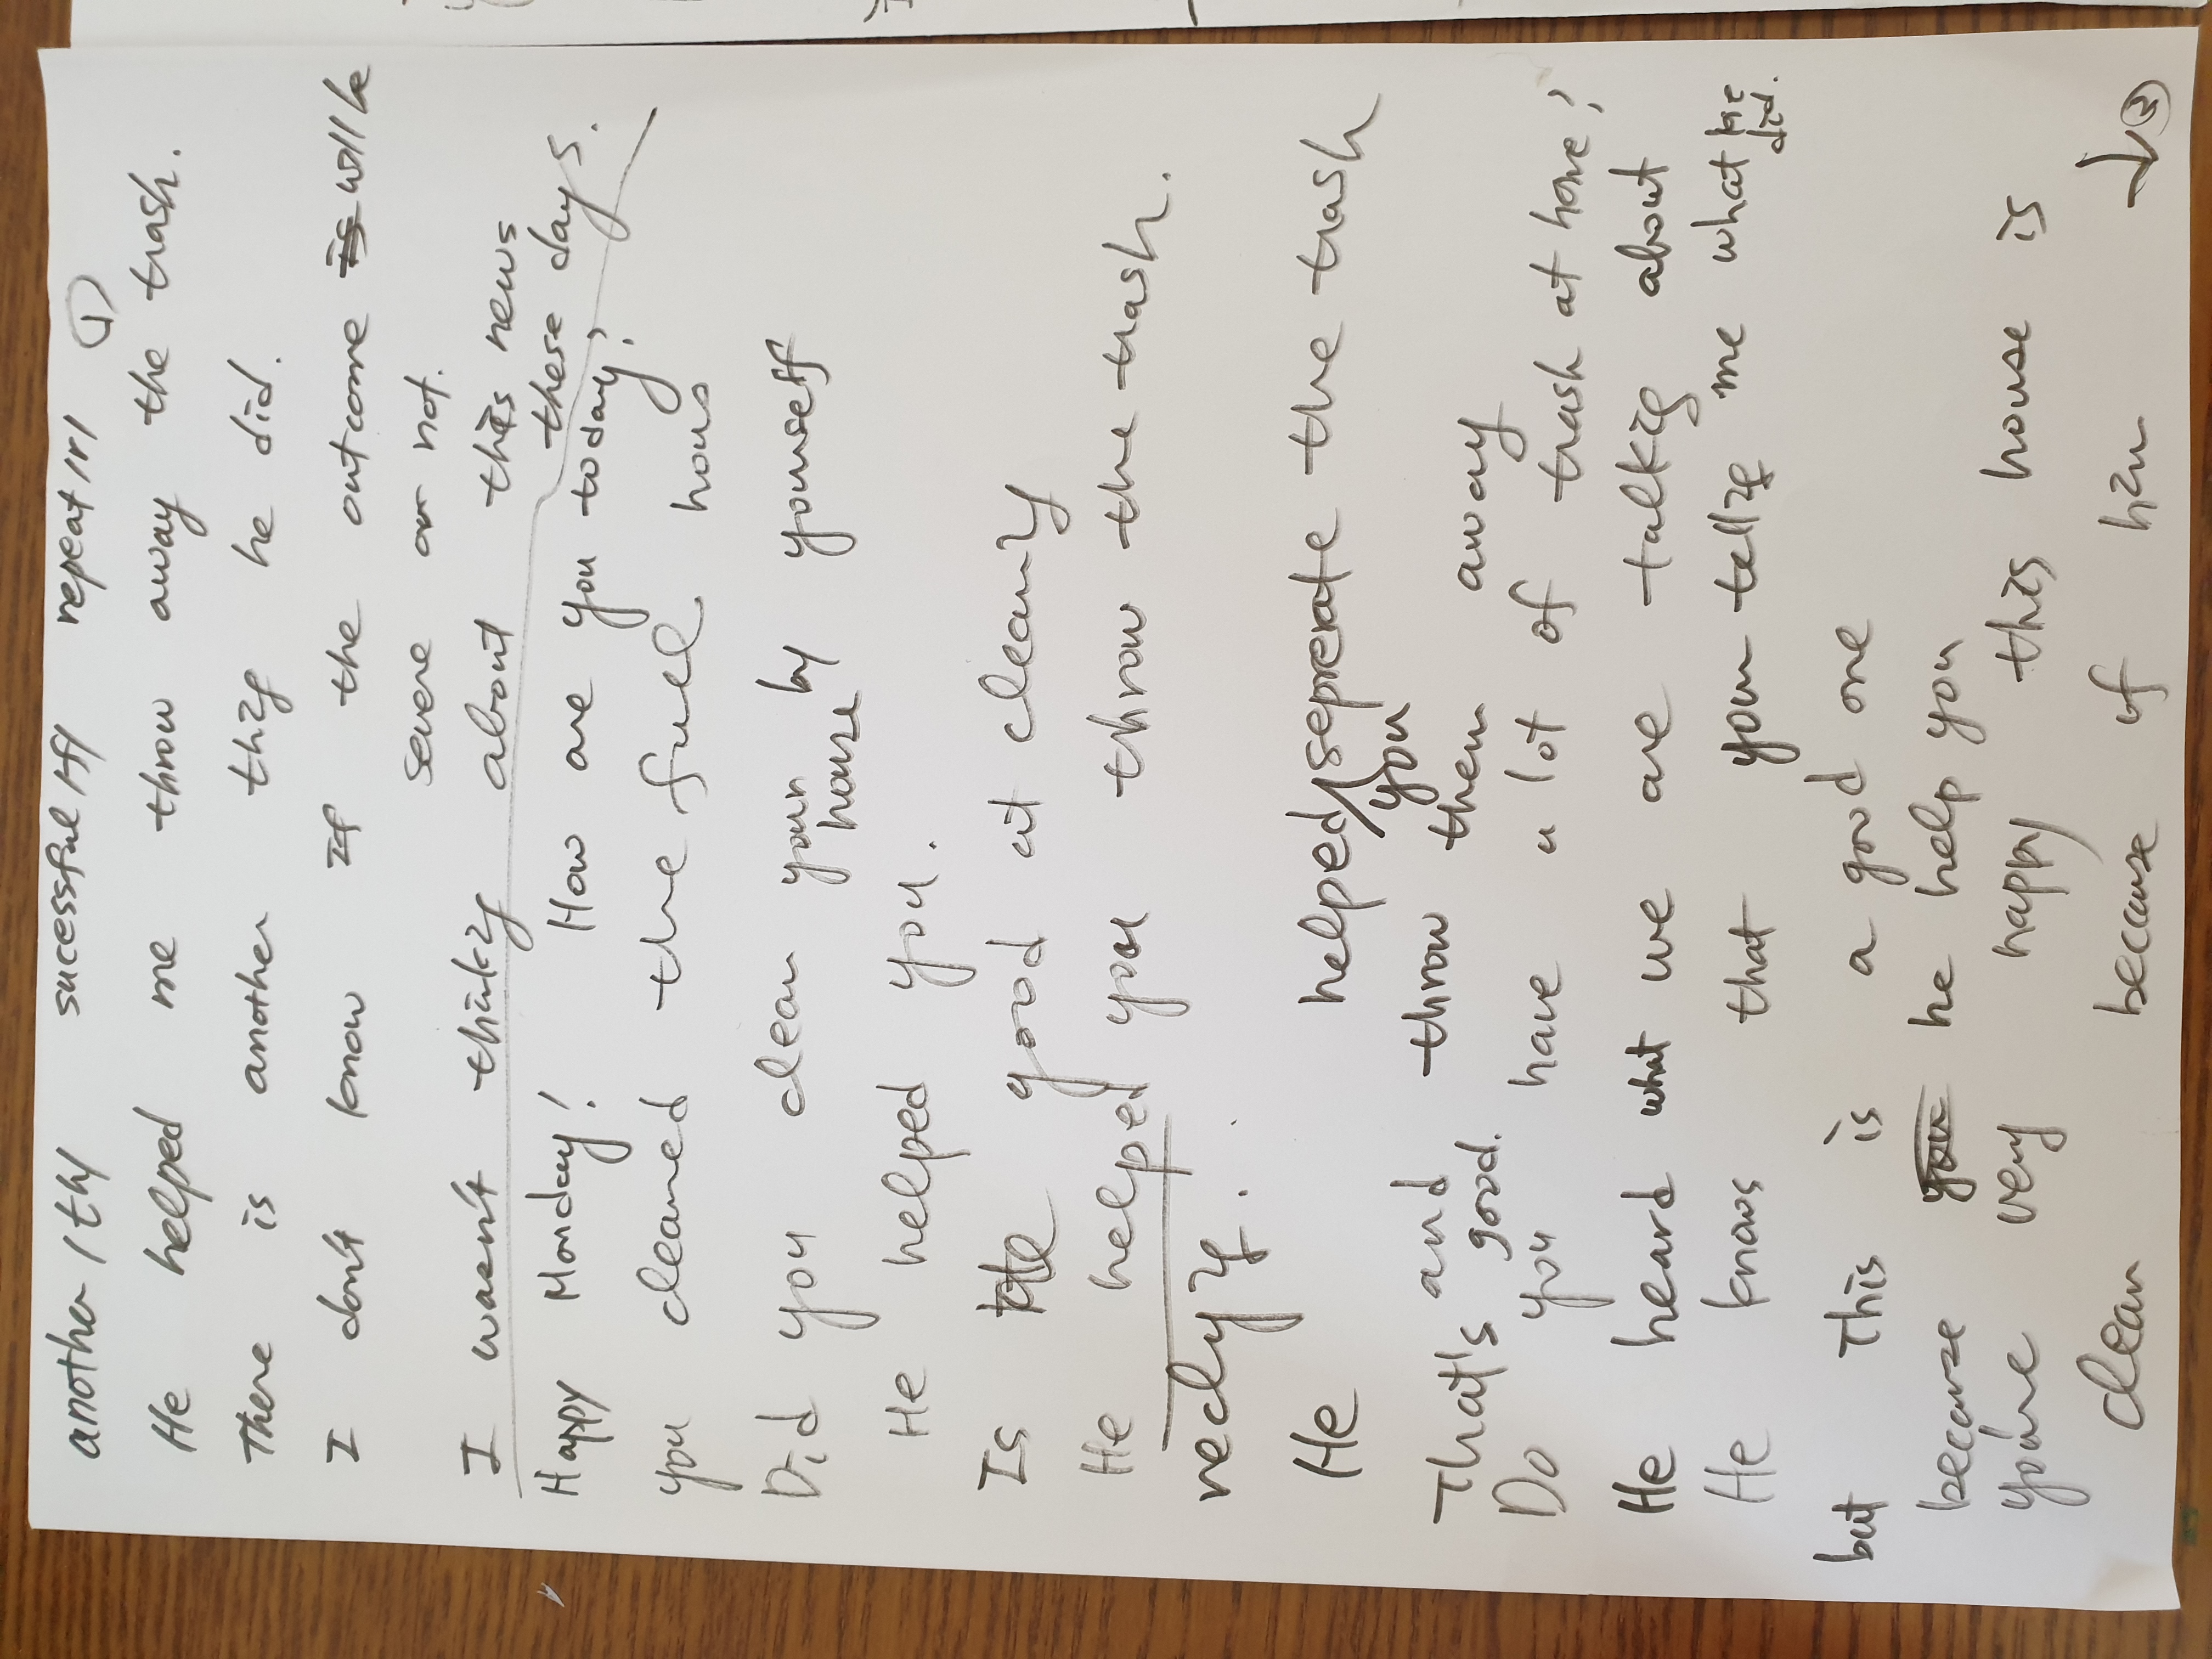 another / th / successful /f/ repeat /r/ ①
He helped me throw away the trash.
There is another thing he did.
I don't know if the outcome will be
severe or not.
I wasn't thinking about this news
these days.
Happy Monday! How are you today?
you cleaned the full hous
Did you clean your house by yourself
He helped you.
Is he good at cleaning
He helped you throw the trash.
recly ing.
He helped you seperate the trash
and throw them away
That's good.
Do you have a lot of trash at home?
He heard what we are talking about
He knows that your telling me what he did.
but this is a good one
because he help you
you're very happy this house is
clean because of him
↓ ②